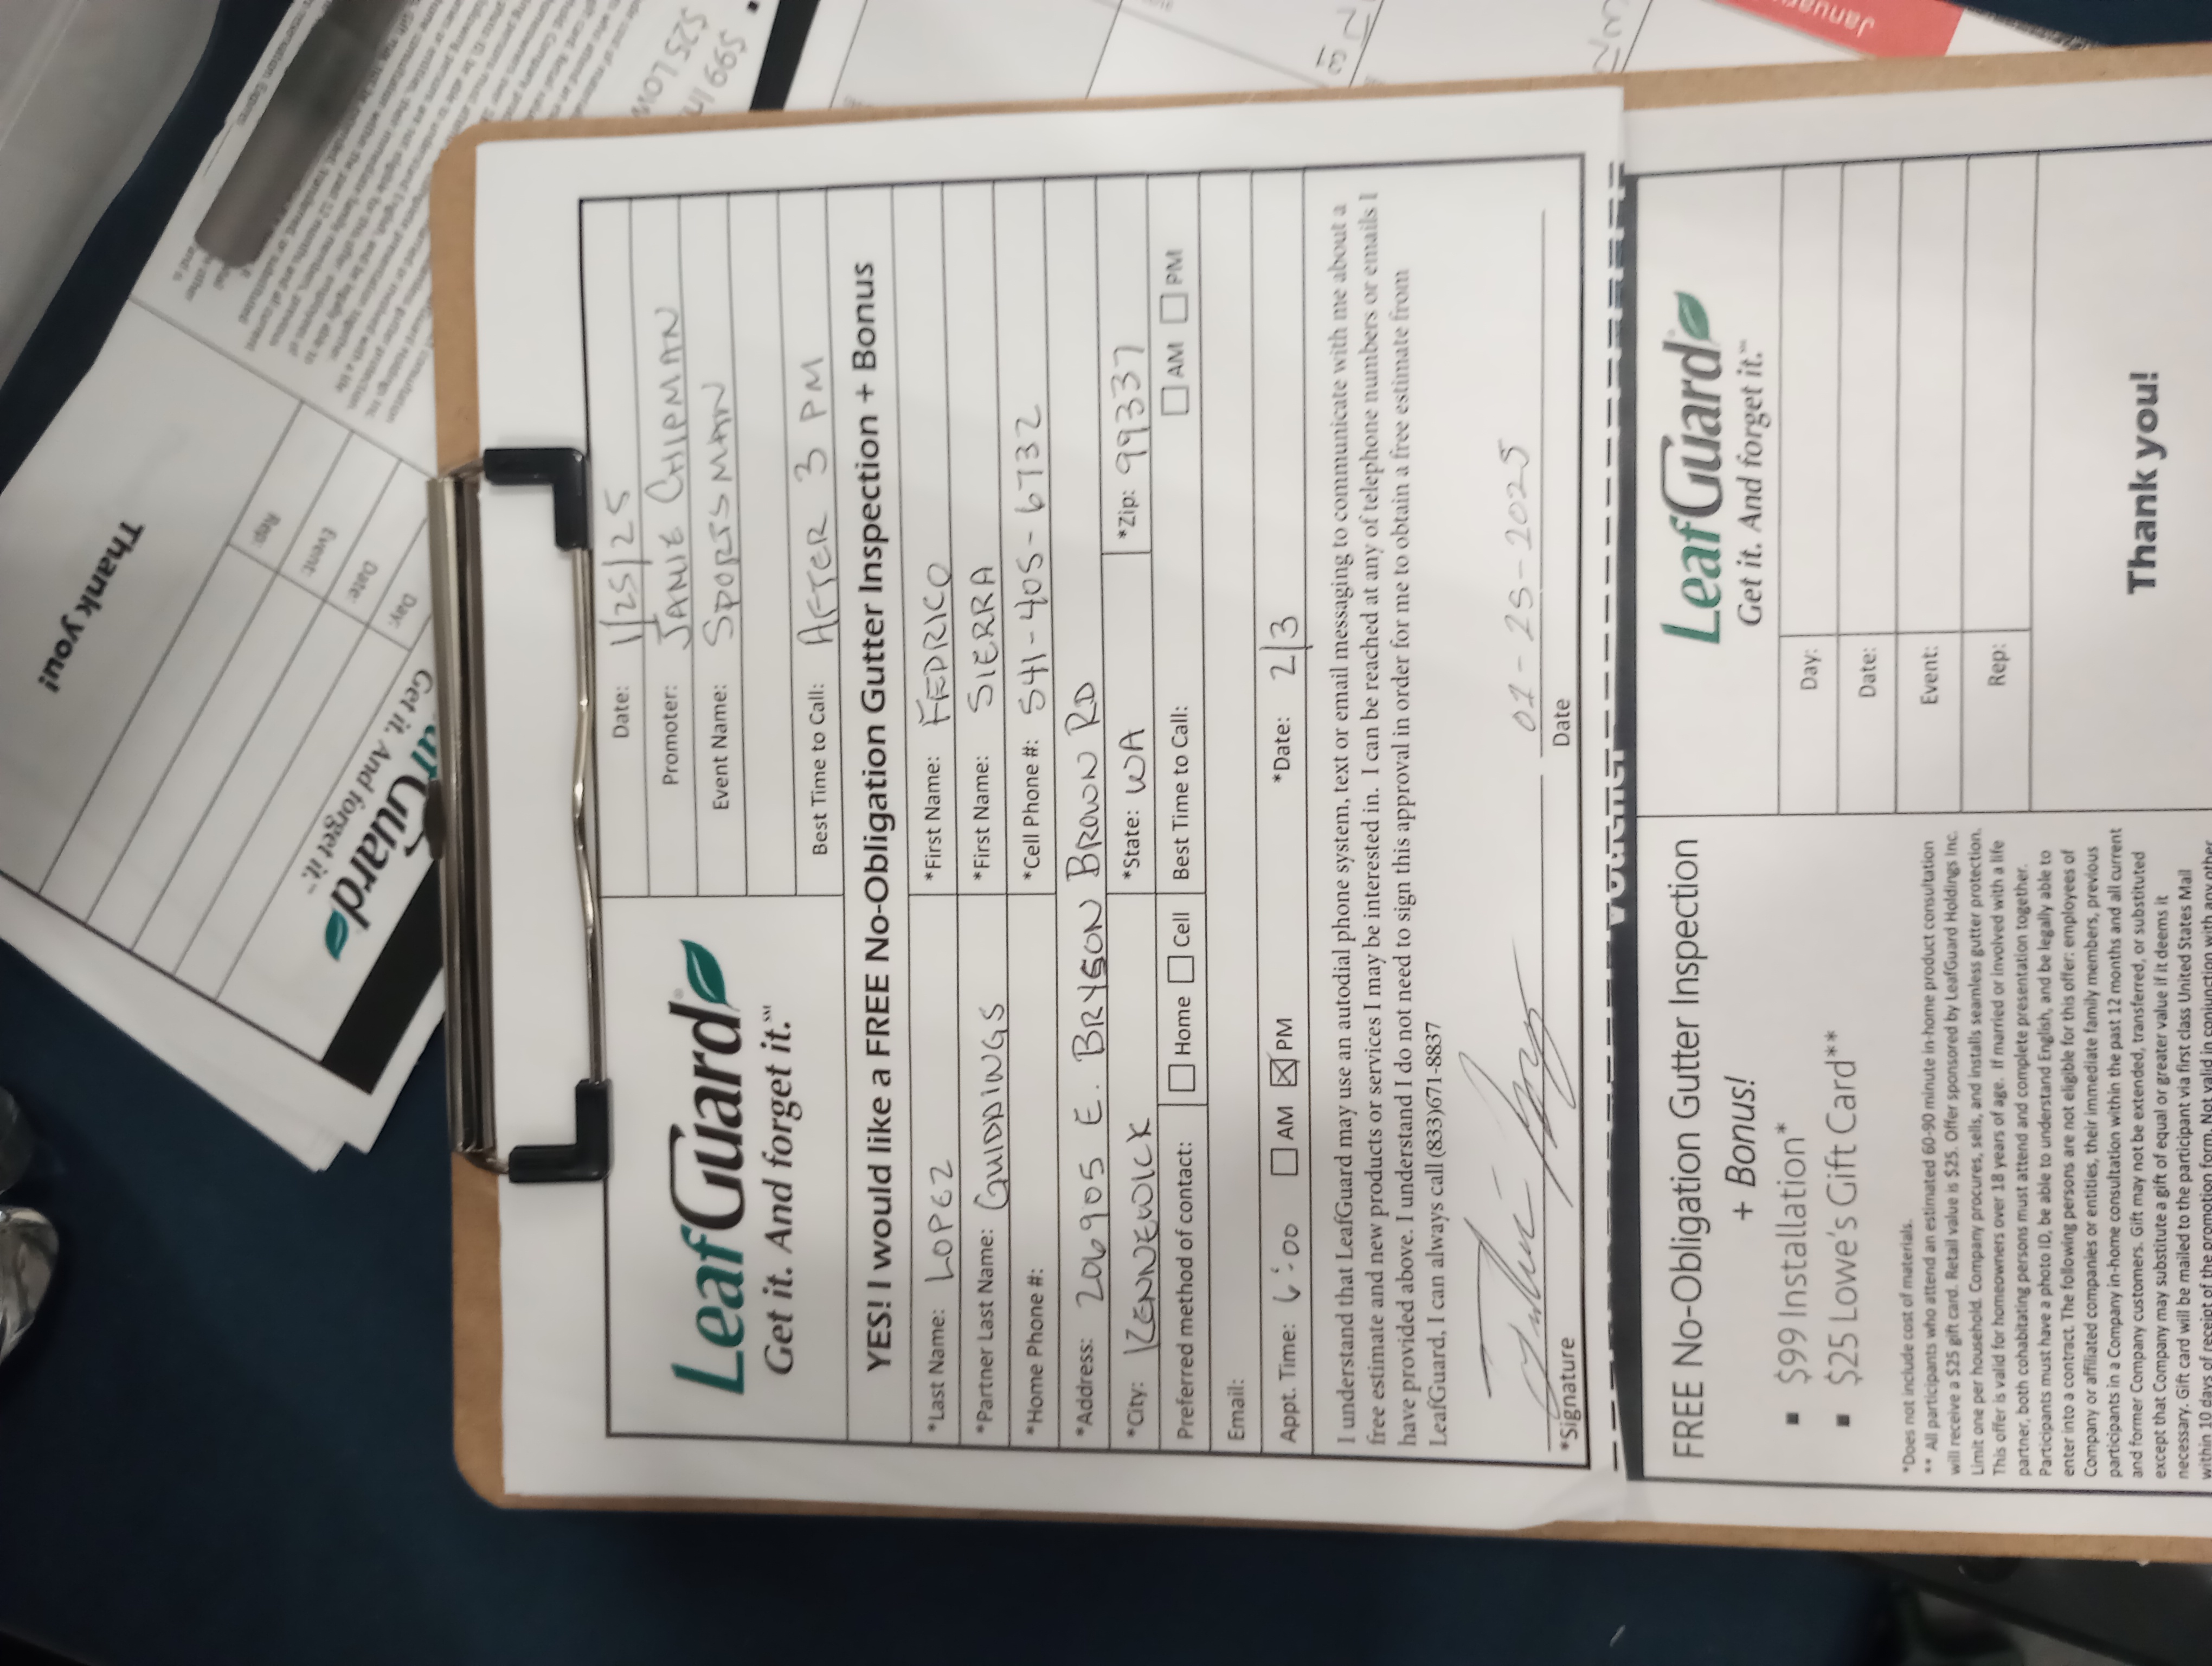 Thank you!
Rep:
Event:
Date:
Day:
Guard
Get it. And forget it.™
$25 Low
$99 In
Date: 1/25/25
Promoter: JAMIE CHIPMAN
Event Name: SPORTSMAN
Best Time to Call: AFTER 3 PM
LeafGuard®
Get it. And forget it.℠
YES! I would like a FREE No-Obligation Gutter Inspection + Bonus
*Last Name: LOPEZ *First Name: FEDRICO
*Partner Last Name: GUIDDINGS *First Name: SIERRA
*Home Phone #: *Cell Phone #: 541-405-6732
*Address: 206905 E. BRYSON BROWN RD
*City: KENNEWICK *State: WA *Zip: 99337
Preferred method of contact: ☐ Home ☐ Cell Best Time to Call: ☐ AM ☐ PM
Email:
Appt. Time: 6:00 ☐ AM ☒ PM *Date: 2/3
I understand that LeafGuard may use an autodial phone system, text or email messaging to communicate with me about a
free estimate and new products or services I may be interested in. I can be reached at any of telephone numbers or emails I
have provided above. I understand I do not need to sign this approval in order for me to obtain a free estimate from
LeafGuard, I can always call (833)671-8837
01-25-2025
*Signature Date
Voucher
FREE No-Obligation Gutter Inspection
+ Bonus!
▪ $99 Installation*
▪ $25 Lowe's Gift Card**
*Does not include cost of materials.
** All participants who attend an estimated 60-90 minute in-home product consultation
will receive a $25 gift card. Retail value is $25. Offer sponsored by LeafGuard Holdings Inc.
Limit one per household. Company procures, sells, and installs seamless gutter protection.
This offer is valid for homeowners over 18 years of age. If married or involved with a life
partner, both cohabitating persons must attend and complete presentation together.
Participants must have a photo ID, be able to understand English, and be legally able to
enter into a contract. The following persons are not eligible for this offer: employees of
Company or affiliated companies or entities, their immediate family members, previous
participants in a Company in-home consultation within the past 12 months and all current
and former Company customers. Gift may not be extended, transferred, or substituted
except that Company may substitute a gift of equal or greater value if it deems it
necessary. Gift card will be mailed to the participant via first class United States Mail
within 10 days of receipt of the promotion form. Not valid in conjunction with any other
LeafGuard
Get it. And forget it.℠
Day:
Date:
Event:
Rep:
Thank you!
31
12
12
3
Januar